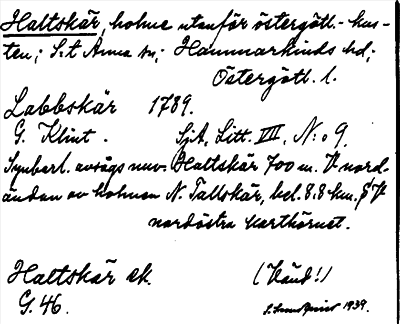 Haltskär, holme utanför östergötl.- kus-
ten; S:t Anna sn; Hammarkinds hd;
Östergötl. l.
Labbskär 1789.
G. Klint. SjA, Litt. VIII, N:o 9.
Synbarl. avsågs nuv. Haltskär 700 m. V nord-
ändan av holmen N. Tallskär, bel. 8.8 km. S V
nordöstra karthörnet.
Haltskär ek. (Vänd!)
G. 46. 1939.